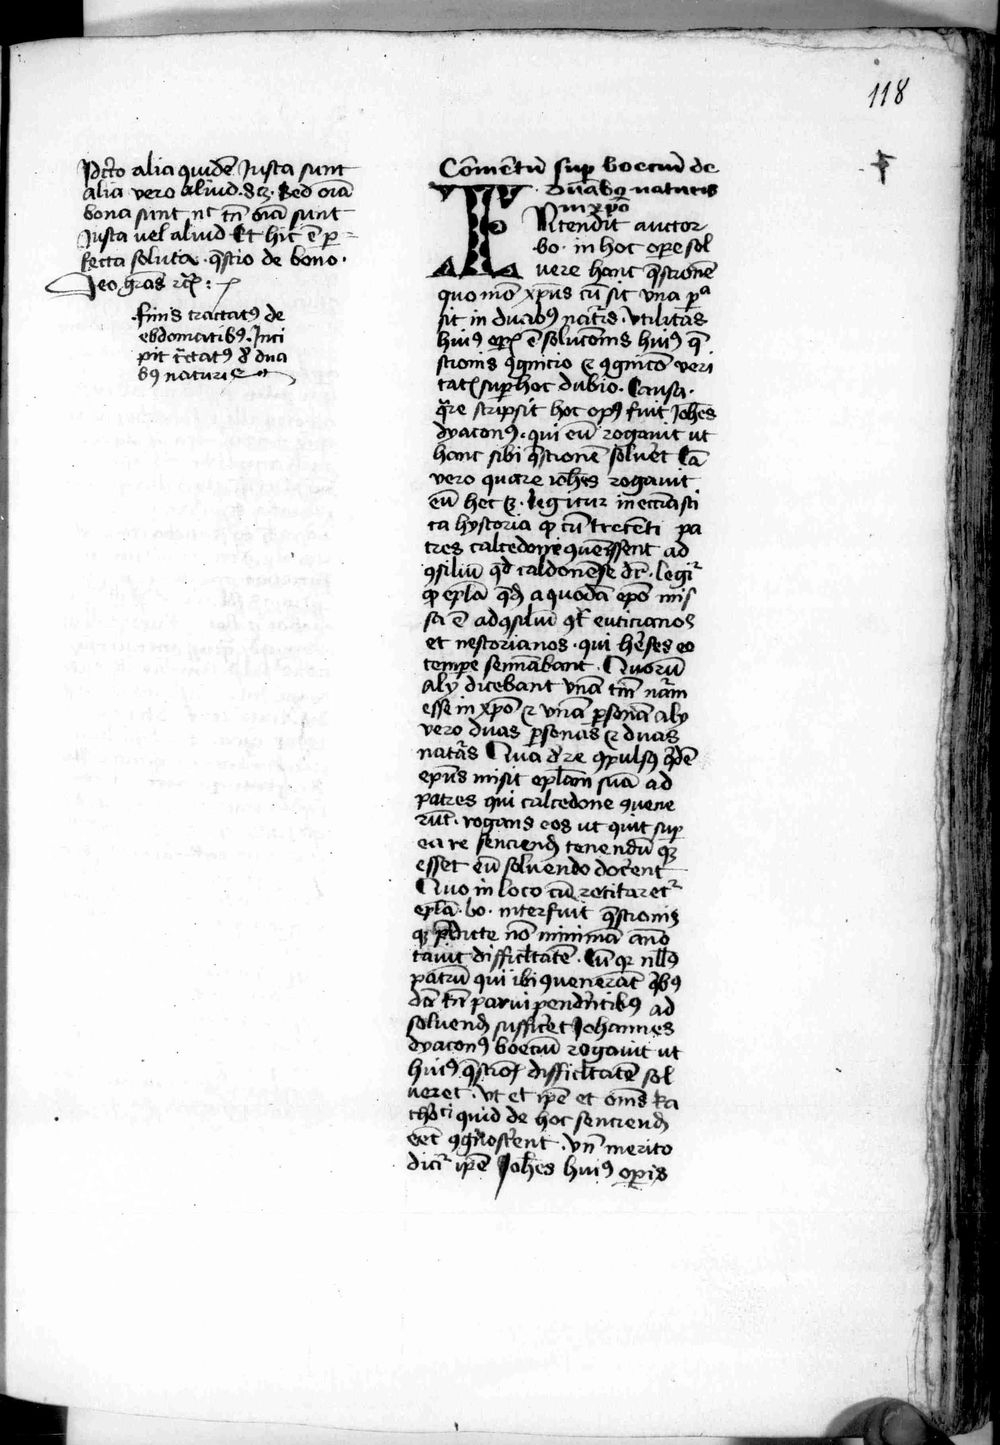 118
Idcirco alia quidem Justa sunt
alia vero aliud. scz. Sed oīa
bona sunt nc tn̄ oīa sunt
Justa vel aliud Et hic ē p̱
fecta soluta. q̄stio de bono.
Deo grās
.finis tractatꝰ de
ebdomatibꝰ. Inci
pit tr̄ctatꝰ de dua
bꝰ naturis
Cōmētū sup̱ boeciū de
duabꝫ naturis
in xp̄o
Intendit auctor
.bo. in hoc opere sol
vere hanc q̄stionē
quo mō xp̄us cū sit vna pͣ
sit in duabꝰ nat̄is. vtilitas
huiꝰ op̱is ē solucōnis huiꝰ q̄
stionis ꝯgnicio et ꝯgnicō veri
tatis sup̱ hoc dubio. Causa.
q̄re scripsit hoc opꝰ fuit Joh̄es
dyaconꝰ. qui eū rogavit ut
hanc sibi q̄stionē solv̄et Cā
vero quare ioh̄es rogavit
eū hec ē. Legitur in eccl̄iasti
ca hystoria ꝙ cū trecenti pa
tres calcedonie ꝯuenissent ad
ꝯsiliū qd̄ caldonēse dr̄. legit᷑
ꝙ ep̄la q̄dā a quodā ep̄o mis
sa ē ad ꝯsiliū ꝯt̄ euticianos
et nestorianos. qui h̄eses eo
tempe seminabant. Quorū
alij dicebant vnā tm̄ nat̄am
esse in xp̄o et vnā p̱sonā alij
vero duas p̱sonas et duas
nat̄as Qua de re ꝯpulsꝰ q̄dē
ep̄us misit ep̄lam suā ad
patres qui calcedone ꝯuene
rūt. rogans eos ut quit sup̱
ea re senciend̄ tenendū qꝫ
esset eū solvendo doc̄ent
Quo in loco cū recitaret᷑
ep̄la .bo. interfuit q̄stionis
qꝫ p̄dicte nō minimā āno
tavit difficl̄tatē. Cū qꝫ nll̄ꝰ
patrū qui ibi ꝯuenerāt q̄bꝰ
parvipendn̄tibꝰ ad
solvend̄ suffic̄et Johannes
dyaconꝰ boeciū rogavit ut
huiꝰ q̄stiōis difficl̄tatē sol
veret. vt et ip̄e et om̄s ka
tholici quid de hoc senciend̄
eēt ꝯgnosc̄ent. vn̄ merito
dicit᷑ ip̄e Joh̄es huiꝰ op̱is